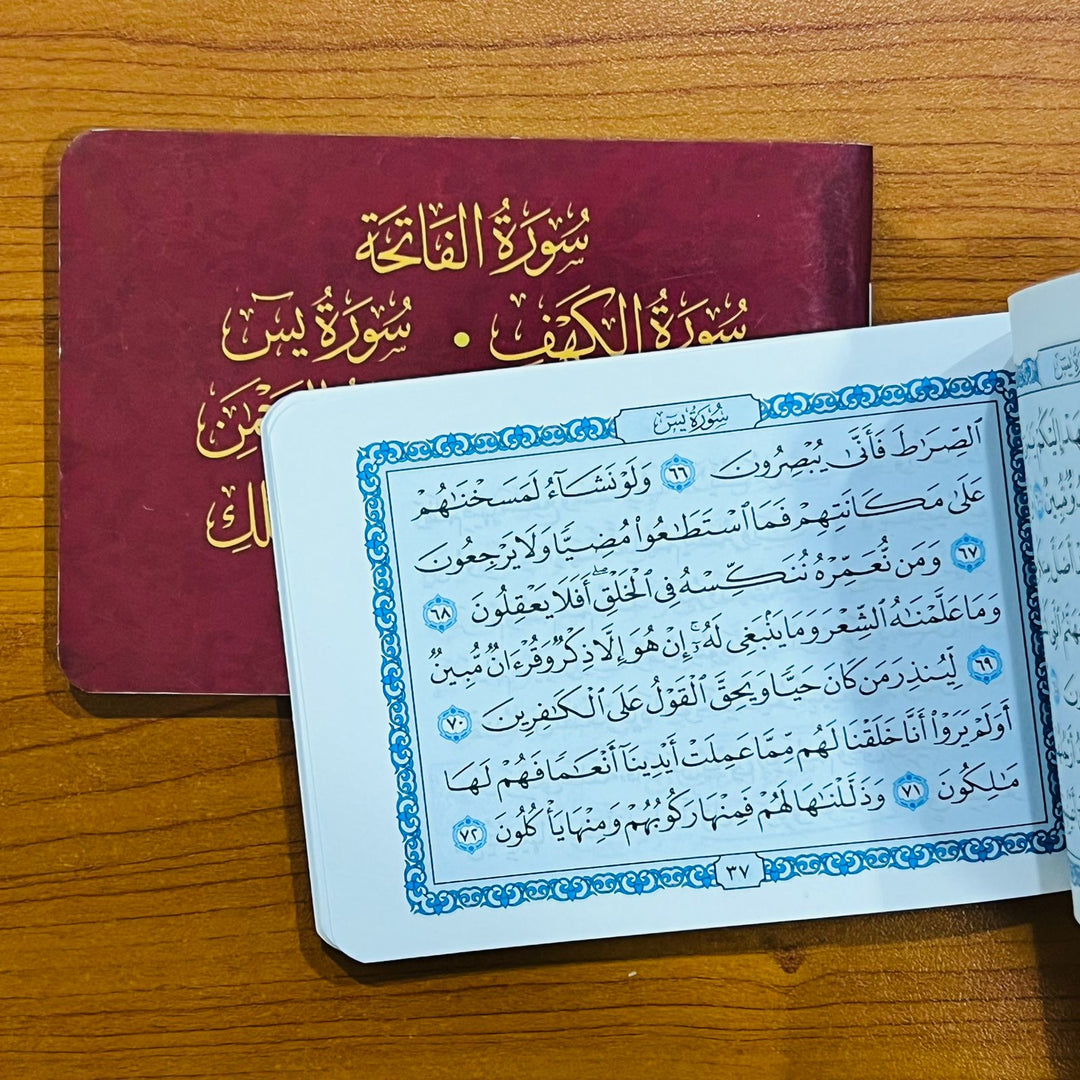 سُورَةُ الفَاتِحَة
سُورَةُ الكَهْفِ • سُورَةُ يسٓ
الرَّحْمٰن
سُورَةُ يسٓ
ٱلصِّرَٰطَ فَأَنَّىٰ يُبْصِرُونَ ٦٦ وَلَوْ نَشَآءُ لَمَسَخْنَٰهُمْ
عَلَىٰ مَكَانَتِهِمْ فَمَا ٱسْتَطَٰعُوا۟ مُضِيًّا وَلَا يَرْجِعُونَ
٦٧ وَمَن نُّعَمِّرْهُ نُنَكِّسْهُ فِى ٱلْخَلْقِ ۖ أَفَلَا يَعْقِلُونَ ٦٨
وَمَا عَلَّمْنَٰهُ ٱلشِّعْرَ وَمَا يَنۢبَغِى لَهُۥٓ ۚ إِنْ هُوَ إِلَّا ذِكْرٌ وَقُرْءَانٌ مُّبِينٌ
٦٩ لِّيُنذِرَ مَن كَانَ حَيًّا وَيَحِقَّ ٱلْقَوْلُ عَلَى ٱلْكَٰفِرِينَ ٧٠
أَوَلَمْ يَرَوْا۟ أَنَّا خَلَقْنَا لَهُم مِّمَّا عَمِلَتْ أَيْدِينَآ أَنْعَٰمًا فَهُمْ لَهَا
مَٰلِكُونَ ٧١ وَذَلَّلْنَٰهَا لَهُمْ فَمِنْهَا رَكُوبُهُمْ وَمِنْهَا يَأْكُلُونَ ٧٢
٣٧